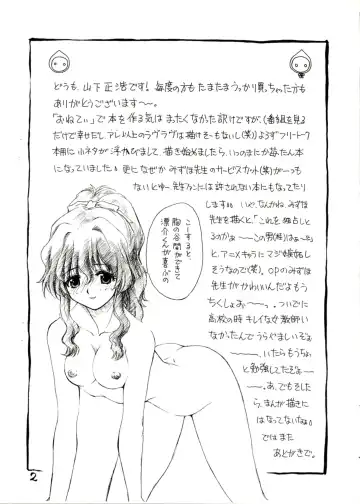 どうも、山下正浩です! 毎度の方もたまたまうっかり買っちゃった方も
ありがとうございます〜〜。
「おねてぃ」で本を作る気はまったくなかった訳ですが、(番組を見る
だけで幸せだし、アレ以上のラヴラヴは描けそーもないし(笑))よろずフリートーク
本用に小ネタが浮かびまして、描き始めましたら、いつのまにか
本に
なっていました。更になぜかみずほ先生のサービスカット(笑)が一つも
ないとゆー先生ファンには許されない本にもなってたり
します。いや、なんかね、みずほ
先生を描くと「これを独占しと
るのかぁーーこの男(桂)はぁーっ」
と、アニメキャラにマジ嫉妬し
そうなので(笑)、OPのみずほ
先生がかわいいんだよもう
ちくしょお〜〜。ついでに
高校の時キレイな女教師い
なかったんでうらやましいぞよ
ーー、いたらもうちょい
と勉強してたぞよーー
ーー。あ、でもそした
ら、まんが描きに
はなってないなぁ。
ではまた
あとがきで。
こーすると、
胸の谷間ができて
涼介くんが喜ぶの
2